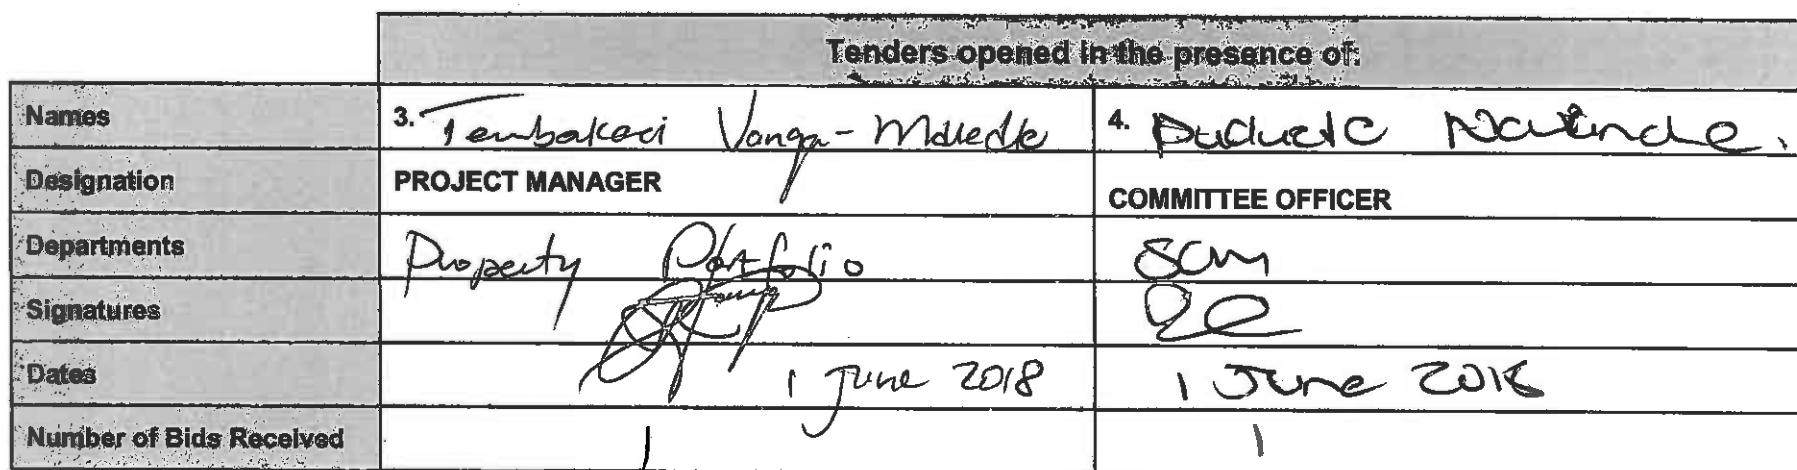 Tenders opened in the presence of:
Names 3. Tembakazi Vonga- 4.
Designation PROJECT MANAGER COMMITTEE OFFICER
Departments Property Portfolio SCM
Signatures
Dates 1 June 2018 1 June 2018
Number of Bids Received 1 1